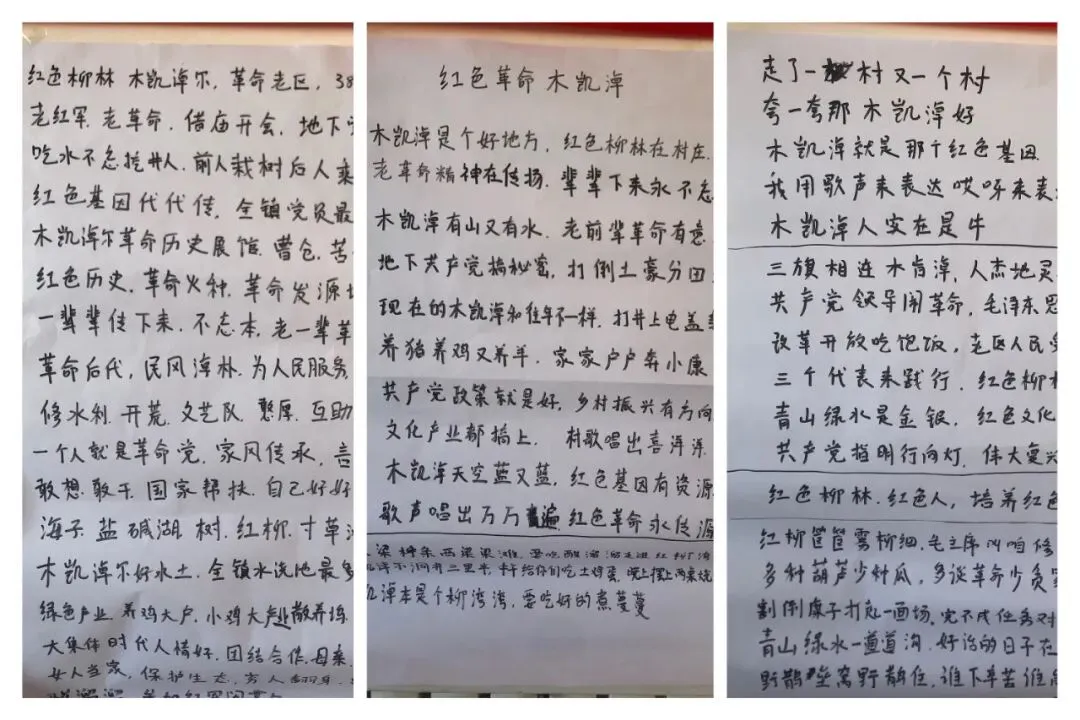 红色柳林 木凯淖尔,革命老区,38
老红军.老革命.借庙开会,地下
吃水不忘挖井人.前人栽树后人乘
红色基因代代传.全镇党员最
木凯淖尔革命历史展馆.曹仓.苦
红色历史,革命火种.革命发源
一辈辈传下来.不忘本.老一辈革
革命后代,民风淖朴.为人民服务
修水利.开荒.文艺队.憨厚.互助
一个人就是革命党.家风传承,言
敢想.敢干.国家帮扶.自己好好
海子.盐碱湖.树.红柳.寸草
木凯淖尔好水土.全镇水浇地最多
绿色产业.养鸡大户.小鸡大产业散养
大集体时代人情好.团结合作.母亲
女人当家,保护生态,
红色革命木凯淖
木凯淖是个好地方,红色柳林在村庄.
老革命精神在传扬.辈辈下来永不忘
木凯淖有山又有水.老前辈革命有意
地下共产党搞秘密,打倒土豪分田
现在的木凯淖和往年不一样.打井上电盖
养猪养鸡又养羊.家家户户奔小康
共产党政策就是好,乡村振兴有方向
文化产业都搞上,村歌唱出喜洋洋
木凯淖天空蓝又蓝,红色基因有资源
歌声唱出万万遍 红色革命永传源
淖本是个柳湾湾,要吃好的煮蔓蔓
走了一村又一个村
夸一夸那木凯淖好
木凯淖就是那个红色基因
我用歌声来表达哎呀来表
木凯淖人实在是牛
三旗相连木肯淖,人杰地灵
共产党领导闹革命,毛泽东思
改革开放吃饱饭,老区人民
三个代表来践行.红色柳林
青山绿水是金银,红色文化
共产党指明行向灯,伟大复兴
红色柳林.红色人,培养红色
红柳笸笸雾柳细.毛主席叫咱修
多种葫芦少种瓜,多谈革命少
割倒糜子打起一面场.完不成任务对
青山绿水一道道沟.好活的日子在
野鹊垒窝野鹊住,谁下辛苦谁